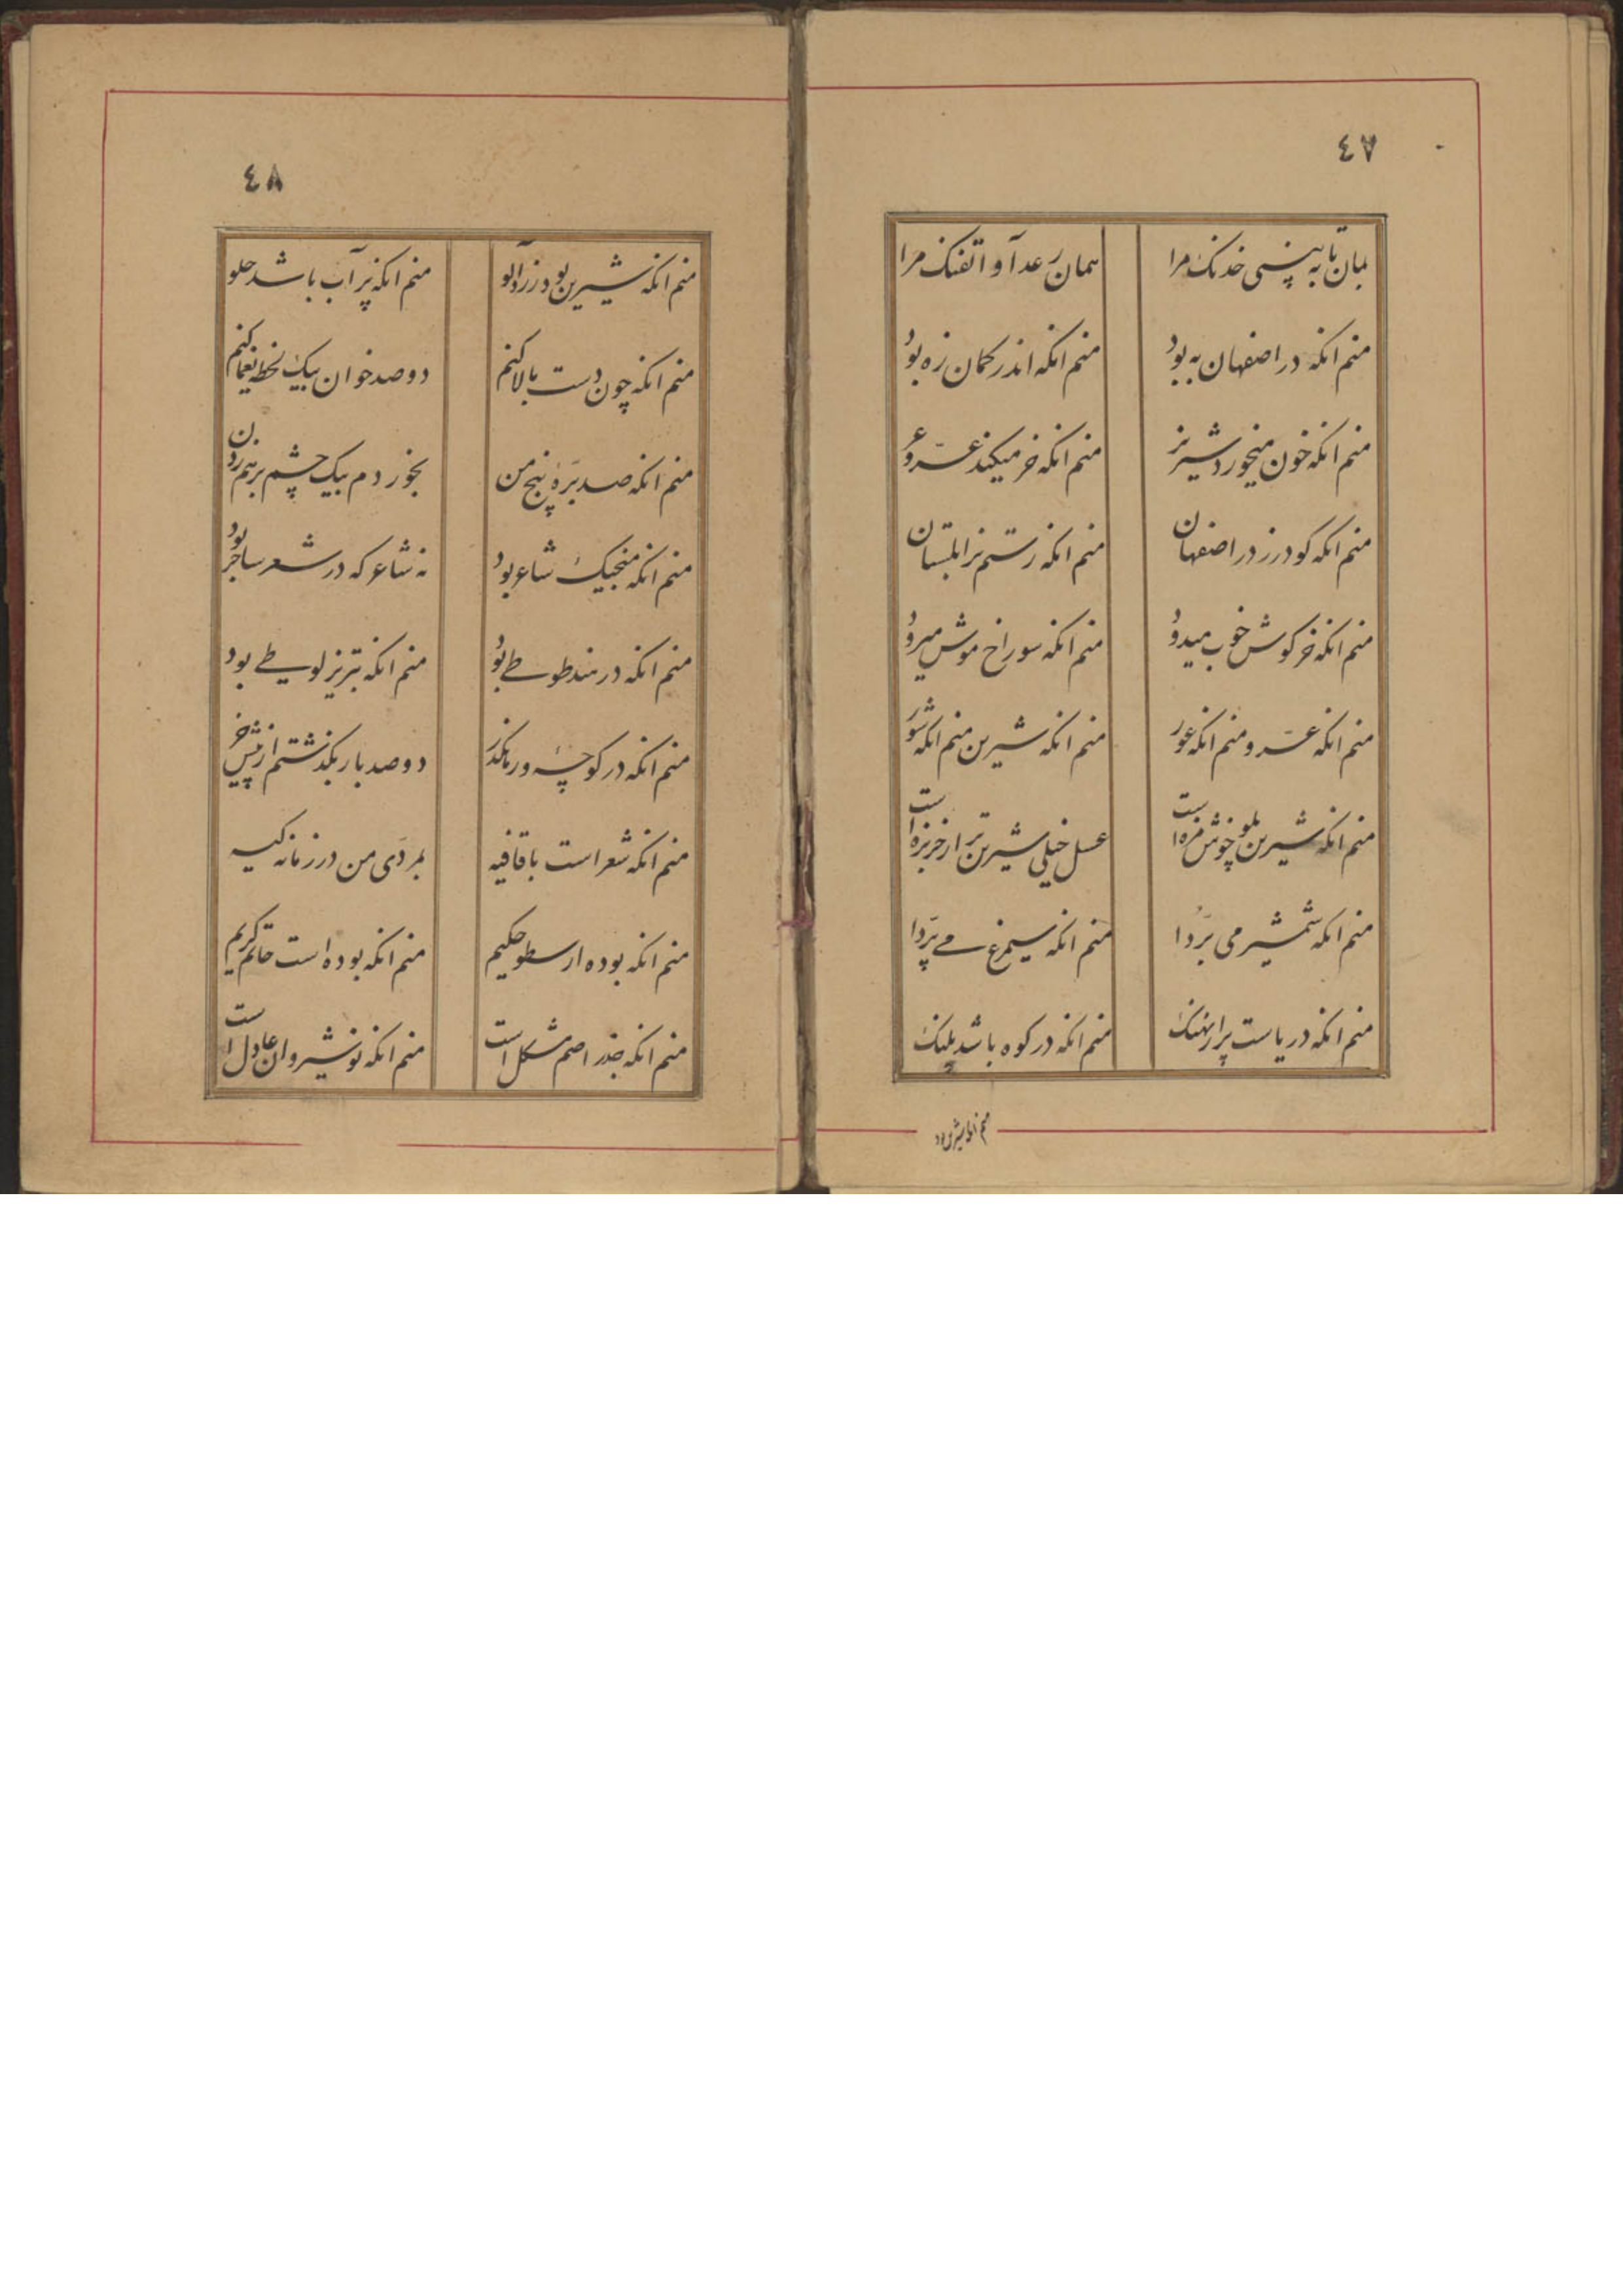 ٤٧
بمان تا به بینی خدنک مرا
همان رعد آوا تفنک مرا
منم انکه در اصفهان به بود
منم انکه اندر کمان زه بود
منم انکه خون میخورد شیر نر
منم انکه خر میکند عرّ و عر
منم انکه کودرز در اصفهان
منم انکه رستم بزابلستان
منم انکه خرکوش خوب میدود
منم انکه سوراخ موش میرود
منم انکه عرّ و منم انکه عور
منم انکه شیرین منم انکه شور
منم انکه شیرین پلو خوش مزه است
عسل خیلی شیرین تر از خربزه است
منم انکه شمشیر می برّدا
منم انکه سیمرغ می پرّدا
منم انکه دریاست پر از نهنک
منم انکه در کوه باشد پلنک
منم انکه شیرین بود
٤٨
منم انکه شیرین بود زردآلو
منم انکه پر آب باشد هلو
منم انکه چون دست بالا کنم
دوصد خوان بیک لحظه یغما کنم
منم انکه صد برّهٔ پنج من
بخوردم بیک چشم برهم زدن
منم انکه منجیک شاعر بود
نه شاعر که در شعر ساحر بود
منم انکه در هند طوطی بود
منم انکه تبریز لوطی بود
منم انکه در کوچهٔ ور مکذر
دوصد بار بکذشتم از پیش خر
منم انکه شعر است با قافیه
بمردّی من در زمانه کیه
منم انکه بوده ارسطو حکیم
منم انکه بوده است حاتم کریم
منم انکه جذر اصم مشکل است
منم انکه نوشیروان عادل است